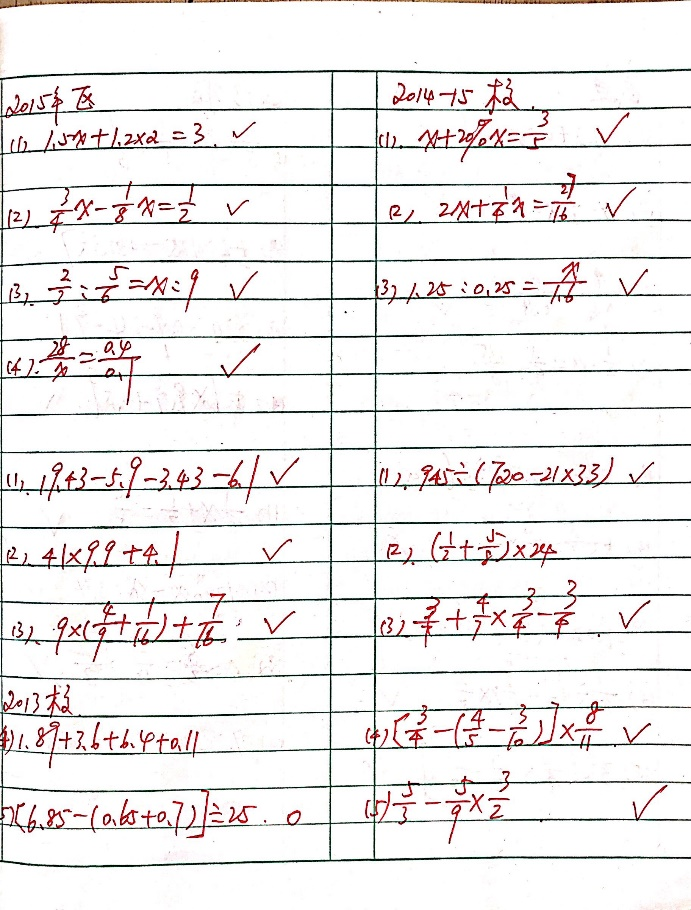 2015年区
(1) 1.5x+1.2×2=3. ✓
(2) 3/4x-1/8x=1/2 ✓
(3). 2/3:5/6=x:9 ✓
(4). 28/x=0.4/0.1 ✓
(1). 19.43-5.9-3.43-6.1 ✓
(2). 41×9.9+4.1 ✓
(3). 9×(4/9+1/16)+7/16. ✓
2013校
(4) 1.89+3.6+6.4+0.11
(5) [6.85-(0.65+0.7)]÷25. 0
2014-15校.
(1). x+20%x=3/5 ✓
(2). 2x+1/4x=27/16 ✓
(3) 1.25:0.25=x/1.6 ✓
(1). 945÷(720-21×33) ✓
(2). (1/2+5/8)×24
(3) 3/4+4/7×3/4-3/4. ✓
(4) [3/4-(4/5-3/10)]×8/11. ✓
(5) 5/3-5/9×3/2 ✓